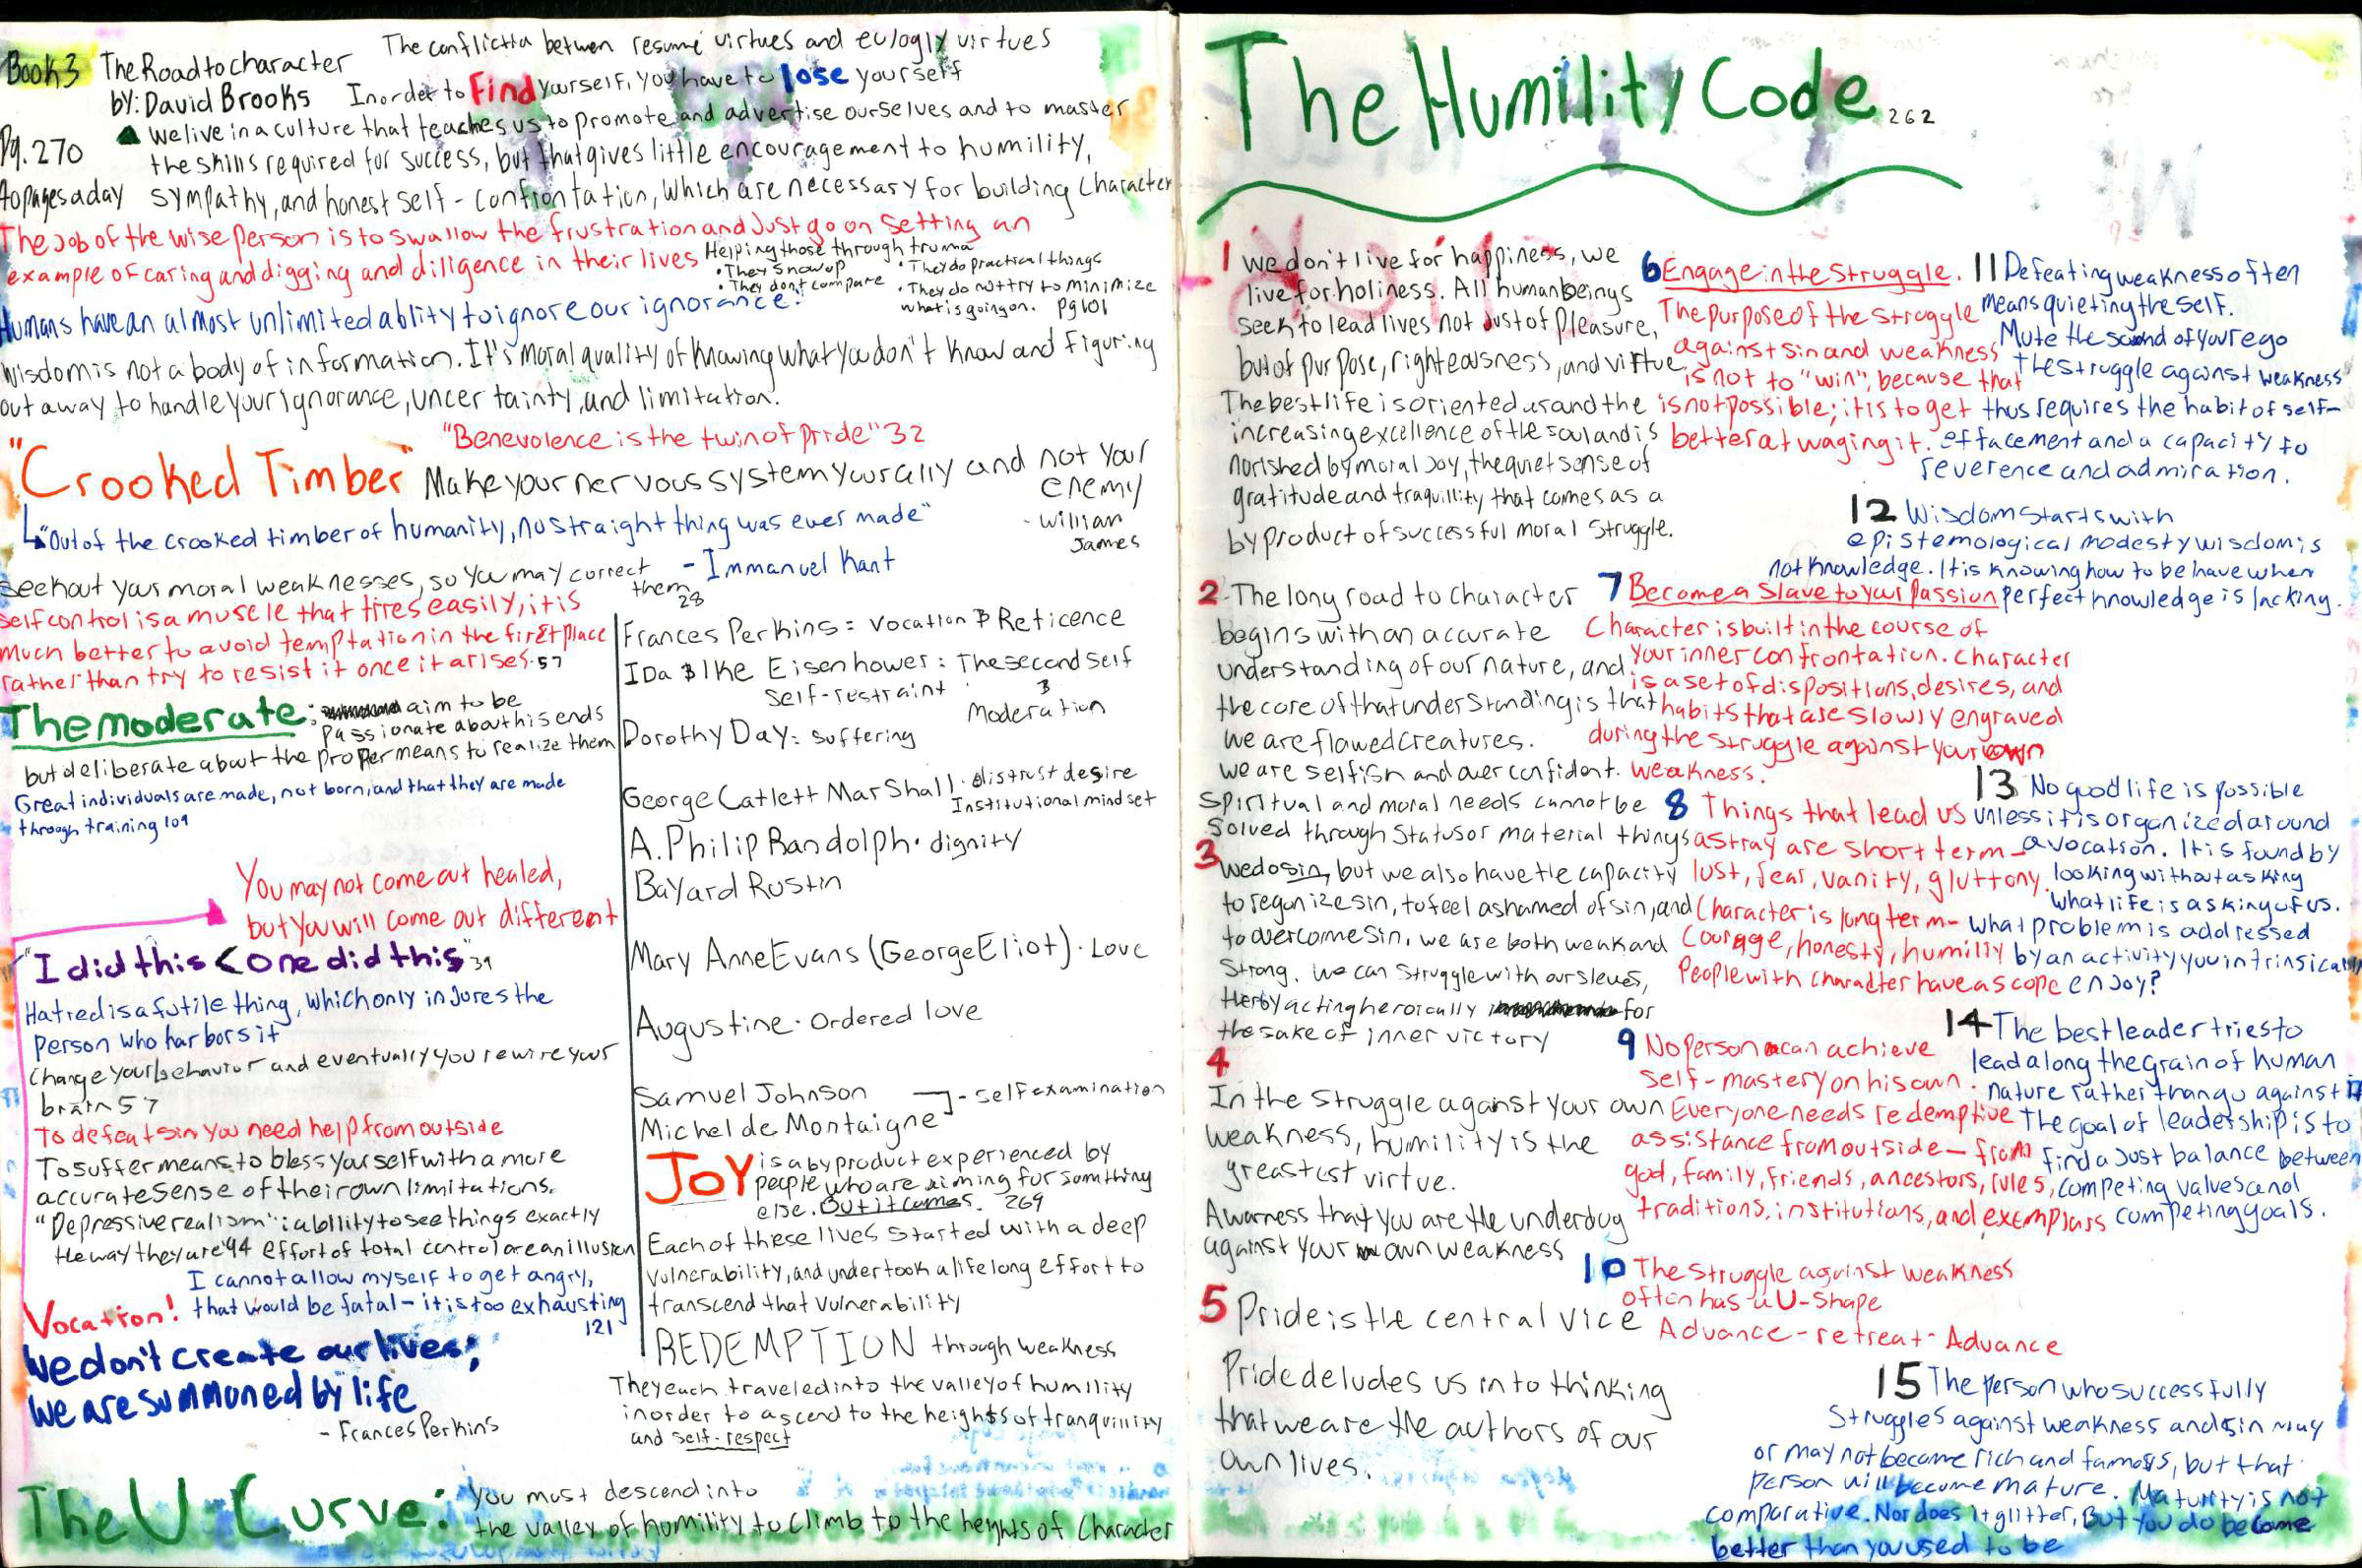 Book 3 The Road to character
by: David Brooks
The conflictia betwen resumé virtues and eulogly virtues
In order to Find yourself, you have to lose yourself
Pg. 270
40 pages a day
we live in a culture that teaches us to promote and advertise ourselves and to master
the skills required for success, but that gives little encouragement to humility,
sympathy, and honest self-confrontation, which are necessary for building character
The Job of the wise person is to swallow the frustration and Just go on setting an
example of caring and digging and diligence in their lives
Helping those through truma
• They show up
• They dont compare
• They do practical things
• They do not try to minimize
what is going on. pg 101
Humans have an almost unlimited ablity to ignore our ignorance.
Wisdom is not a body of information. It's moral quality of knowing what you don't know and figuring
out away to handle your ignorance, uncertainty, and limitation.
"Benevolence is the twin of pride" 32
"Crooked Timber"
Make your nervous system your ally and not your
enemy
- Willian
James
"Out of the crooked timber of humanity, no straight thing was ever made"
- Immanuel Kant
seek out your moral weaknesses, so you may correct
them 28
self control is a muscle that tires easily, it is
much better to avoid temptation in the first place
rather than try to resist it once it arises. 57
The moderate: aim to be
passionate about his ends
but deliberate about the proper means to realize them
Great individuals are made, not born, and that they are made
through training 109
You may not come out healed,
but you will come out different
"I did this < one did this" 39
Hatred is a futile thing, which only injures the
person who harbors it
Change your behavior and eventually you rewire your
brain 57
To defeat sin you need help from outside
To suffer means to bless yourself with a more
accurate sense of their own limitations.
"Depressive realism": ability to see things exactly
the way they are 94 effort of total control are an illusion
I cannot allow myself to get angry,
that would be fatal - it is too exhausting
121
Vocation!
We don't create our lives;
we are summoned by life
- Frances Perkins
Frances Perkins = vocation & Reticence
IDa & Ike Eisenhower: The second self
self-restraint & Moderation
Dorothy Day: suffering
George Catlett Marshall • distrust desire
Institutional mindset
A. Philip Randolph • dignity
Bayard Rustin
Mary Anne Evans (George Eliot) • Love
Augustine • Ordered love
Samuel Johnson
Michel de Montaigne
- self examination
JOY is a by product experienced by
people who are aiming for somthing
else. But it comes. 269
Each of these lives started with a deep
vulnerability, and undertook a lifelong effort to
transcend that vulnerability
REDEMPTION through weakness
They each traveled into the valley of humility
inorder to ascend to the heights of tranquillity
and self-respect
The U-Curve: you must descend into
the valley of humility to climb to the heights of character
The Humility Code 262
1 we don't live for happiness, we
live for holiness. All human beings
seek to lead lives not Just of pleasure,
but of purpose, righteousness, and virtue
The best life is oriented around the
increasing excellence of the soul and is
norished by moral Joy, the quiet sense of
gratitude and traquillity that comes as a
by product of successful moral struggle.
2 The long road to character
begins with an accurate
understanding of our nature, and
the core of that understanding is that
we are flawed creatures.
we are selfish and over confident.
Spiritual and moral needs cannot be
solved through status or material things
3 we do sin, but we also have the capacity
to regonize sin, to feel ashamed of sin, and
to overcome sin. we are both weak and
strong. We can struggle with ourslevs,
therby acting heroically for
the sake of inner victory
4
In the struggle against your own
weakness, humility is the
greastest virtue.
Awarness that you are the underdog
against your own weakness
5 Pride is the central vice
Pride deludes us in to thinking
that we are the authors of our
own lives.
6 Engage in the struggle.
The purpose of the struggle
against sin and weakness
is not to "win", because that
is not possible; it is to get
better at waging it.
7 Become a slave to your passion
Character is built in the course of
your inner confrontation. Character
is a set of dispositions, desires, and
habits that are slowly engraved
during the struggle against your own
weakness.
8 Things that lead us
astray are short term-
lust, fear, vanity, gluttony.
Character is long term-
Courage, honesty, humilly
People with character have a scope
9 No person can achieve
self-mastery on his own.
Everyone needs redemptive
assistance from outside- from
god, family, friends, ancestors, rules,
traditions, institutions, and exemplars
10 The struggle against weakness
often has a U-shape
Advance - retreat - Advance
11 Defeating weakness often
means quieting the self.
Mute the sound of your ego
the struggle against weakness
thus requires the habit of self-
effacement and a capacity to
reverence and admiration.
12 Wisdom starts with
epistemological modesty wisdom is
not knowledge. It is knowing how to behave when
perfect knowledge is lacking.
13 No good life is possible
unless it is organized around
a vocation. It is found by
looking without asking
what life is asking of us.
what problem is addressed
by an activity you intrinsically
enjoy?
14 The best leader tries to
lead along the grain of human
nature rather than go against it
The goal of leadership is to
find a Just balance between
competing values and
competing goals.
15 The person who successfully
struggles against weakness and sin may
or may not become rich and famous, but that
person will become mature. Maturity is not
comparative. Nor does it glitter, But you do become
better than you used to be